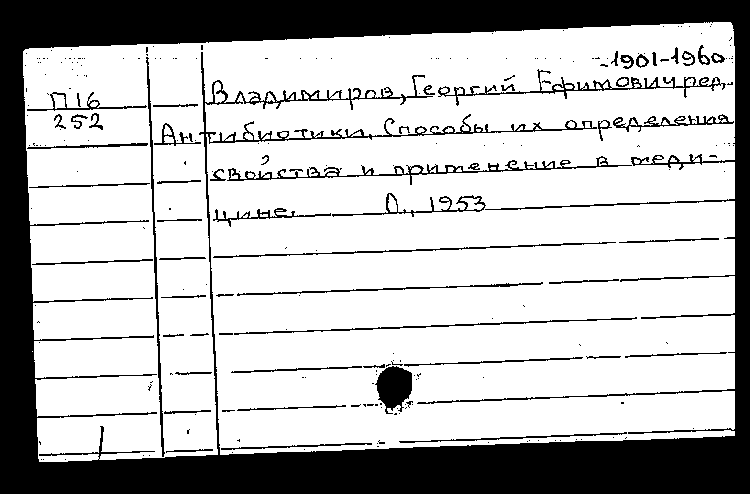 1901-1960
П16 Владимиров, Георгий Ефимович ред.
252 Антибиотики. Способы их определения
свойства и применение в меди-
цине. Л., 1953